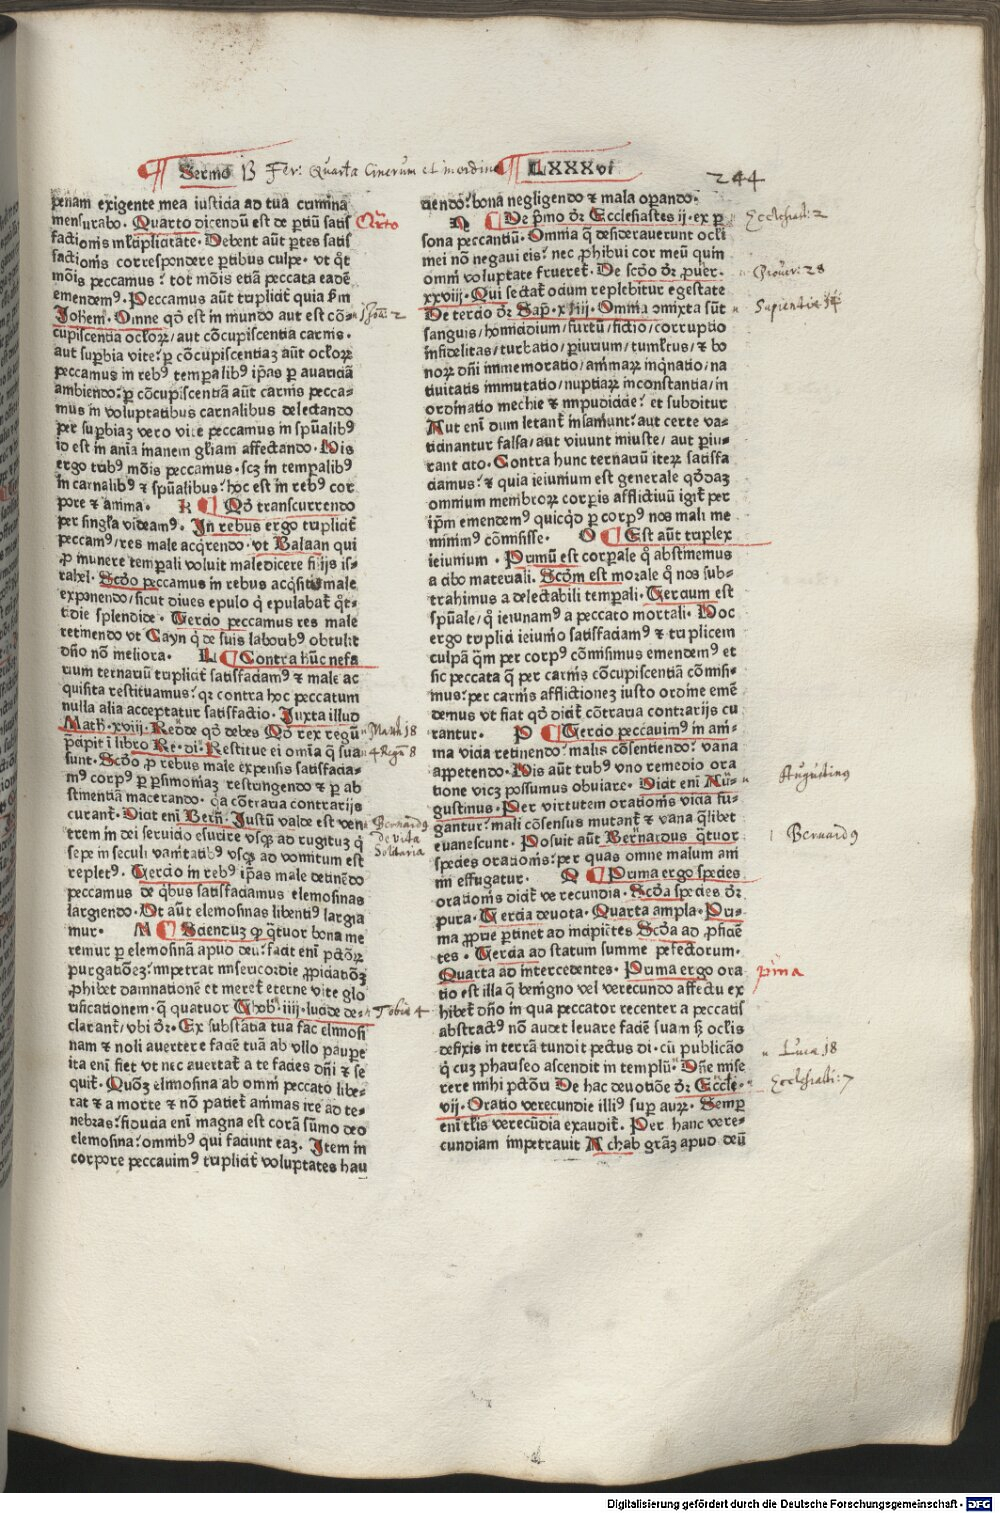 Sermo B Fer: Quarta Cinerum et in ordine LXXXvi
244
penam exigente mea iusticia ad tua crimina
mensurabo. Quarto dicendū est de ꝑtiū satis
factionis mĺtiplicitate. Debent aūt ꝑtes satis
factionis correspondere ꝑtibus culpe. vt qͦt
mōis peccamus: tot mōis etiā peccata eadē
emendemꝰ. Peccamus aūt tripliciť quia ẜm
Johēm. Omne qd̄ est in mundo aut est cō-
cupiscentia oculoꝝ/ aut cōcupiscentia carnis.
aut suꝑbia vite. ꝑ cōcupiscentiaꝫ aūt oculoꝝ
peccamus in rebꝰ temꝑalibꝰ ip̄as ꝑ auariciā
ambiendo. ꝑ cōcupiscentiā aūt carnis pecca-
mus in voluptatibus carnalibus delectando
per suꝑbiaꝫ vero vite peccamus in sp̄ualibꝰ
id est in ania inanem gl̄iam affectando. His
ergo tribꝰ mōis peccamus. scꝫ in temꝑalibꝰ
in carnalibꝰ ⁊ sp̄ualibus. hoc est in rebꝰ cor
pore ⁊ anima. K Qd̄ transcurrendo
per singl̄a videamꝰ. In rebus ergo tripliciť
peccamꝰ/ res male acq̄rendo. vt Balaan qui
ꝓ munere temꝑali voluit maledicere filijs is-
rahel. Scd̄o peccamus in rebus acq̄sitis male
exponendo/ sicut diues epulo q̄ epulabať qͦt-
tidie splendide. Tercio peccamus res male
retinendo vt Cayn q̄ de suis laboribꝰ obtulit
dn̄o nō meliora. L Contra hūc nefa
rium ternariū tripliciť satisfaciamꝰ ⁊ male ac
quisita restituamus. qꝛ contra hoc peccatum
nulla alia acceptatur satisfactio. Juxta illud
Math. xviij. Redde qd̄ debes Qd̄ rex regū
p̄cipit ī libro Re. di. Restitue ei omīa q̄ sua
sunt. Scd̄o ꝓ rebus male expensis satisfacia-
mꝰ corpꝰ ꝑ ꝑsimoniaꝫ restringendo ⁊ ꝑ ab
stinentiā macerando. q̄a cōtraria contrarijs
curanť. Dicit enī Berñ. Justū valde est ven
trem in dei seruicio esurire vsqꝫ ad rugituꝫ q̄
sepe in seculi vanitatibꝰ vsqꝫ ad vomitum est
repletꝰ. Tercio in rebꝰ ip̄as male detinēdo
peccamus de qͥbus satisfaciamus elemosinas
largiendo. Ut aūt elemosinas libentiꝰ largia
mur. M Sciendūꝫ ꝙ qͣtuor bona me
remur ꝑ elemosinā apud deū. facit enī pctōꝝ
purgatiōeꝫ. impetrat misericordie ꝓpiciatiōꝫ
ꝓhibet damnationē et mereť eterne vite glo
rificationem. q̄ quatuor Thob. iiij. lucide de-
clarant/ vbi dꝛ. Ex substātia tua fac elmosi
nam ⁊ noli auertere faciē tuā ab vllo pauꝑe
ita enī fiet vt nec auertať a te facies dn̄i ⁊ se
quiť. Quōꝫ elimosina ab omni peccato libe-
rat ⁊ a morte ⁊ nō patieť animas ire ad te-
nebras. fiducia enī magna est corā sūmo deo
elemosina. omnibꝰ qui faciunt eaꝫ. Item in
corpore peccauimꝰ tripliciť voluptates hau
riendo. bona negligendo ⁊ mala oꝑando.
N De pͥmo dꝛ Ecclesiastes ij. ex ꝑ
sona peccantiū. Omnia q̄ desiderauerunt ocl̄i
mei nō negaui eis. nec ꝓhibui cor meū quin
omni voluptate frueret̄. De scd̄o dꝛ ꝓuer.
xxviij. Qui sectať ocium replebitur egestate
De tercio dꝛ Sap. xiiij. Omnia cōmixta sūt
sanguis/ homicidium/ furtū/ fictio/ corruptio
infidelitas/ turbatio/ ꝑiurium/ tumltus/ ⁊ bo
noꝝ dn̄i immemoratio/ animaꝝ inqͥnatio/ na
tiuitatis immutatio/ nuptiaꝝ inconstantia/ in
ordinatio mechie ⁊ impudicicie. et subditur
Aut enī dum letant̄ insaniunt. aut certe va-
ticinantur falsa/ aut viuunt iniuste/ aut ꝑiu-
rant cito. Contra hunc ternariū iteꝝ satisfa
ciamus. ⁊ quia ieiunium est generale qd̄daꝫ
omnium membroꝝ corꝑis afflictiuū igiť per
ip̄m emendemꝰ quicqͥd ꝑ corpꝰ nos mali me
minimꝰ cōmisisse. O Est aūt triplex
ieiunium. Primū est corꝑale q̄ abstinemus
a cibo materiali. Scd̄m est morale q̄ nos sub-
trahimus a delectabili temꝑali. Tercium est
sp̄uale/ q̄ ieiunamꝰ a peccato mortali. Hoc
ergo triplici ieiunio satisfaciamꝰ ⁊ triplicem
culpā qͣm per corpꝰ cōmisimus emendemꝰ et
sic peccata q̄ per carnis cōcupiscentiā cōmisi-
mus. per carnis afflictionez iusto ordine emē
demus vt fiat qd̄ dicit̄ cōtraria contrarijs cu
rantur. P Tercio peccauimꝰ in ani-
ma vicia retinendo. malis cōsentiendo. vana
appetendo. His aūt tribꝰ vno remedio ora
tione vicꝫ possumus obuiare. Dicit enī Au-
gustinus. Per virtutem orationis vicia fu-
gantur. mali cōsensus mutant̄ ⁊ vana qͥlibet
euanescunt. Posuit aūt Bernardus qͣtuor
species orationis. per quas omne malum ani
mi effugatur. Q Prima ergo species
orationis dicit̄ verecundia. Scd̄a species dꝛ
pura. Tercia deuota. Quarta ampla. Pri-
ma ꝓprie ꝑtinet ad incipiētes Scd̄a ad ꝓficiē
tes. Tercia ad statum summe perfectorum.
Quarta ad intercedentes. Prima ergo ora
tio est illa q̄ benigno vel verecundo affectu ex
hibeť dn̄o in qua peccator recenter a peccatis
abstractꝰ nō audet leuare faciē suam sꝫ oculis
defixis in terrā tundit pectus di. cū publicāo
q̄ cuꝫ phariseo ascendit in templū. Dn̄e mise
rere mihi pctōri De hac deuotiōe dꝛ Eccle.
vij. Oratio verecundie illiꝰ suꝑ auꝝ. Semꝑ
enī tl̄is verecūdia exaudiť. Per hanc vere-
cundiam impetrauit Achab gr̄aꝫ apud deū
Qͣrto
Johā: 2
Math 18
4 Regū 8
Bernardꝰ
de vita
Solitaria
Tobie 4
Ecclesiast: 2
Prouer: 28
Sapientie 14
Augustinꝰ
Bernardꝰ
pͥma
Luca 18
Ecclesiasti: 7
Digitalisierung gefördert durch die Deutsche Forschungsgemeinschaft - DFG